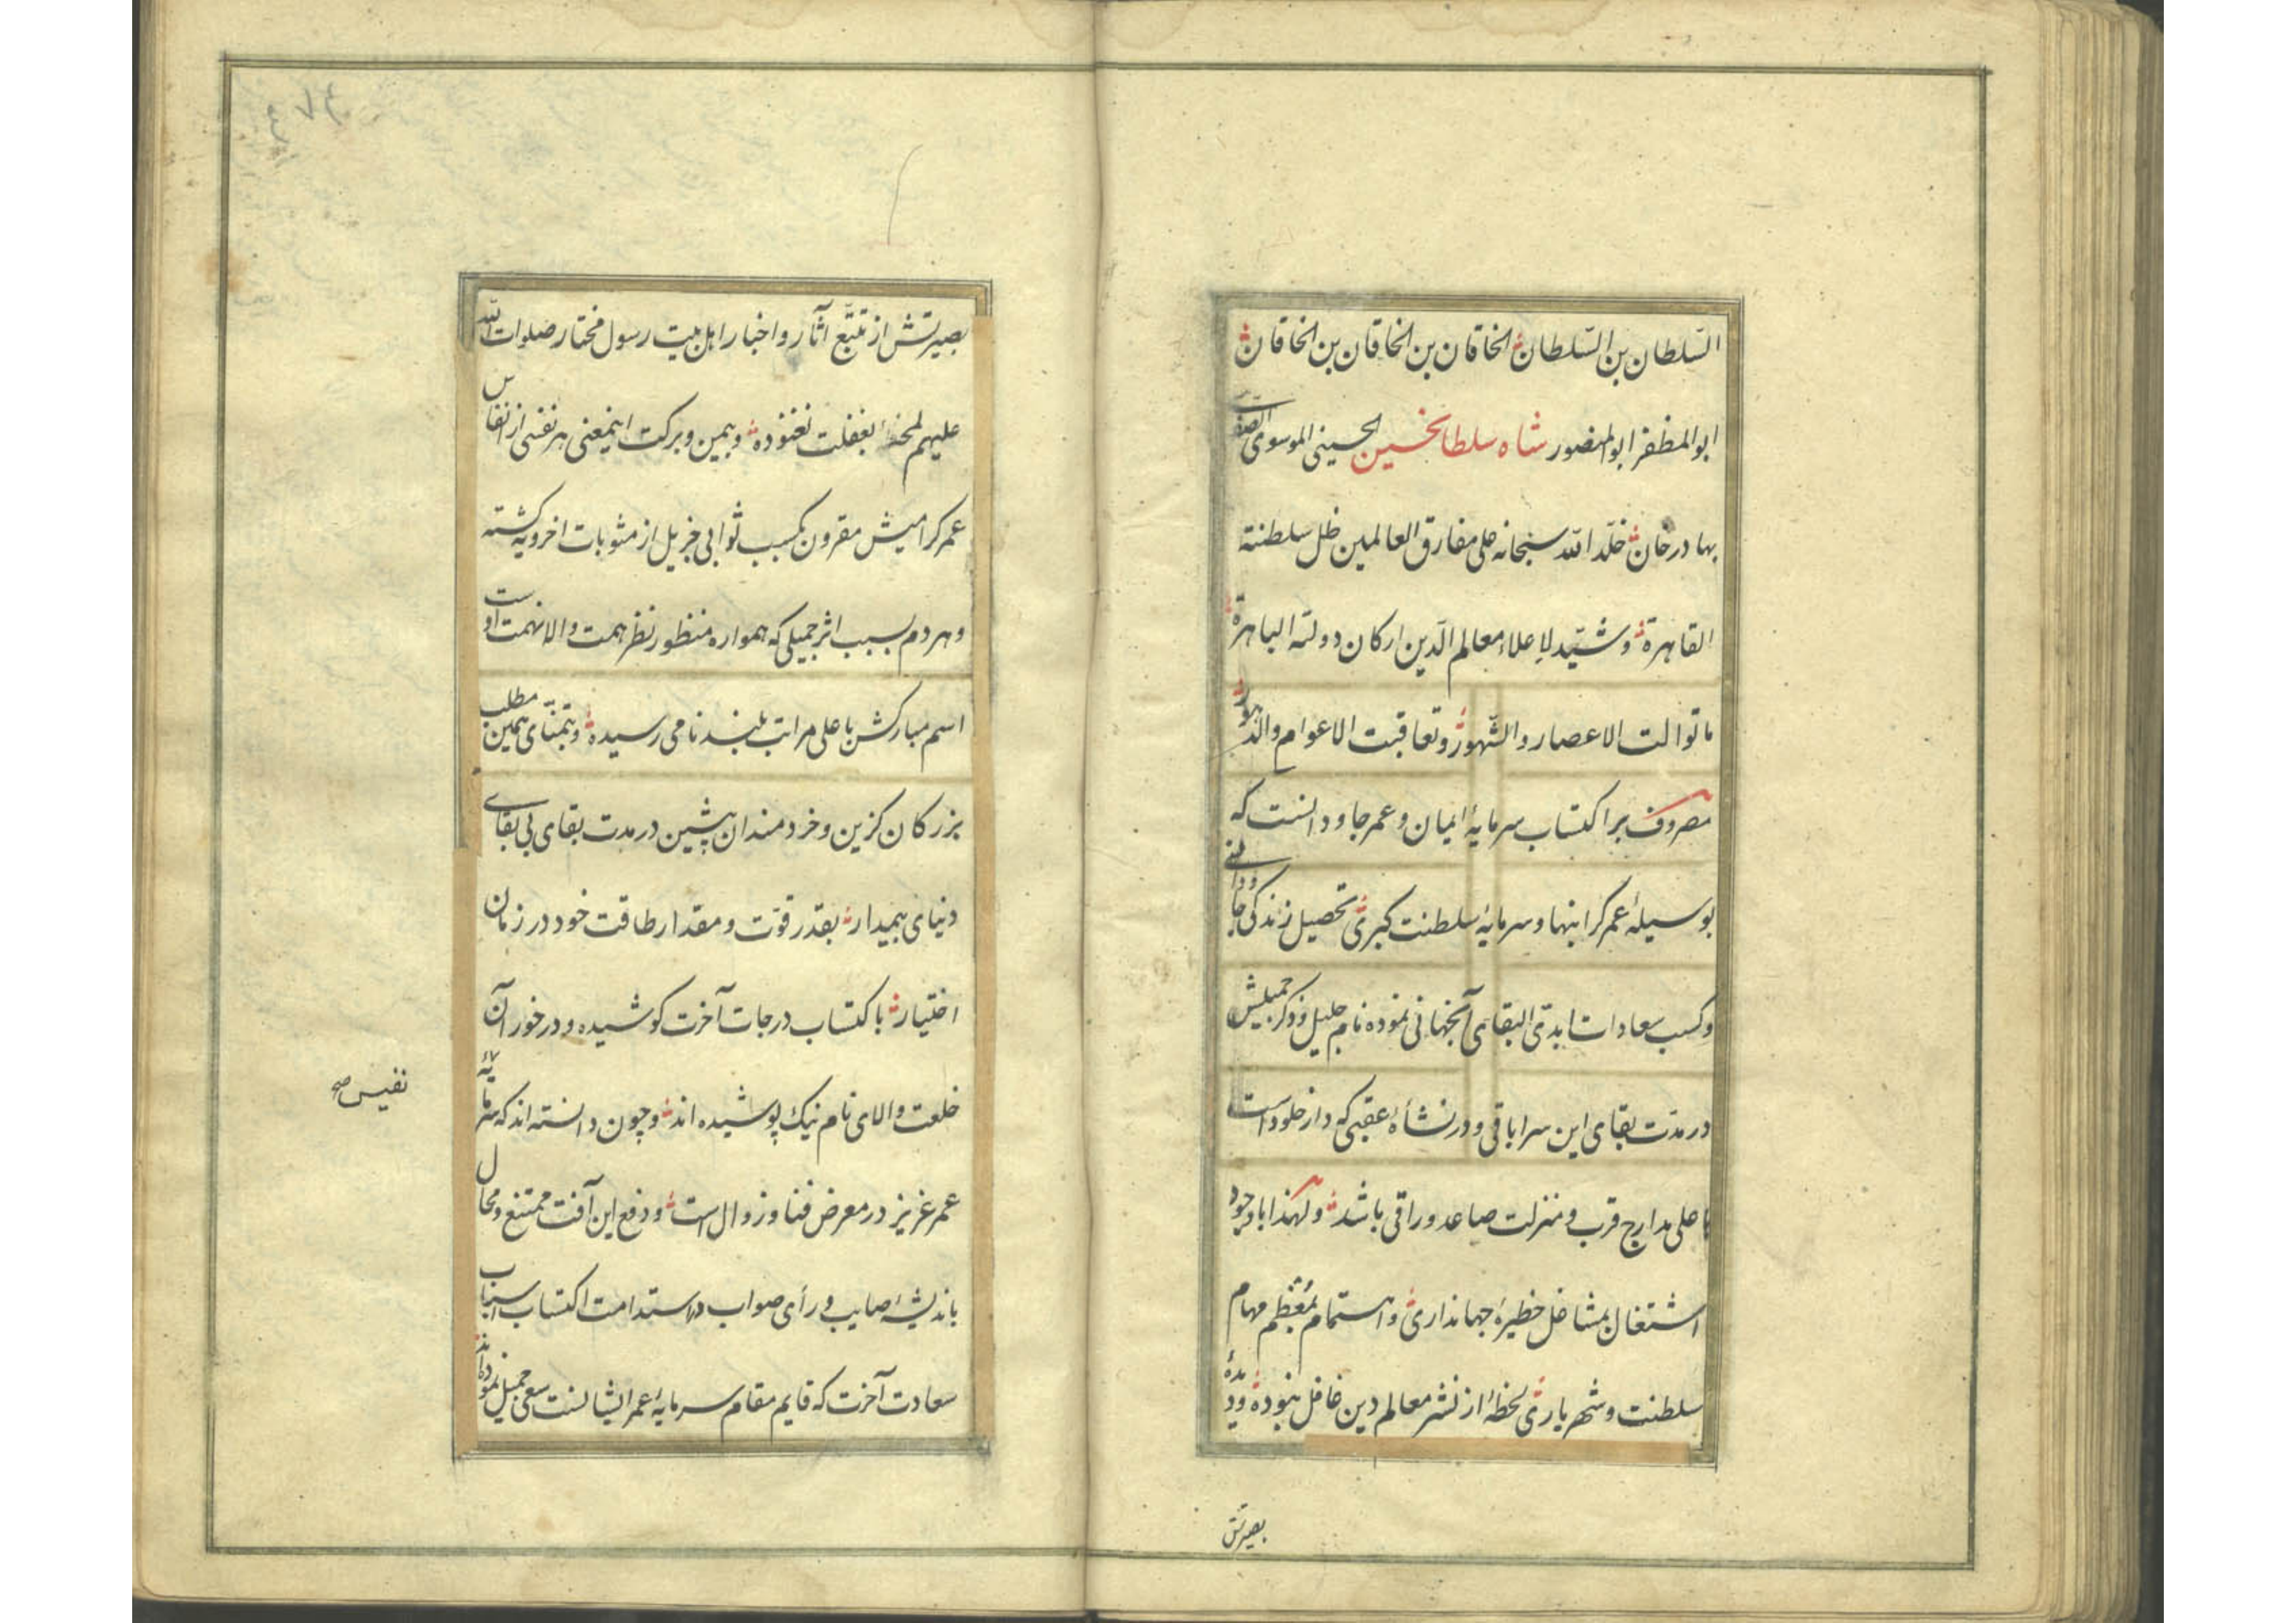 السّلطان بن السّلطان الخاقان بن الخاقان بن الخاقان
ابو المظفر ابو المنصور شاه سلطانحسین الحسینی الموسوی الصفوی
بهادرخان خلّد الله سبحانه علی مفارق العالمین ظل سلطنته
القاهرة و شیّد لاعلاء معالم الدّین ارکان دولته الباهرة
ما توالت الاعصار والشّهور وتعاقبت الاعوام والدهور
مصروف بر اکتساب سرمایهٔ ایمان و عمر جاودانست که
بوسیلهٔ عمر کرانبها و سرمایهٔ سلطنت کبری تحصیل زندکی جاودانی
و کسب سعادات ابدی البقای آنجهانی نموده نام جلیل و ذکر جمیلش
در مدّت بقای این سرا باقی و در نشأهٔ عقبی که دار خلود است
باعلی مدارج قرب و منزلت صاعد و راقی باشد و لهذا با وجود
اشتغال بمشاغل خطیرهٔ جهانداری و اهتمام بمُعْظَم مهام
سلطنت و شهریاری لحظهٔ از نشر معالم دین غافل نبوده و دیدهٔ
بصیرتش
بصیرتش از تتبّع آثار و اخبار اهل بیت رسول مختار صلوات الله
علیهم لمحهٔ بغفلت نغنوده و بیمن و برکت اینمعنی هر نفسی از انفاس
عمر کرامیش مقرون بکسب ثوابی جزیل از مثوبات اخرویه کشته
و هر دم بسبب اثر جمیلی که همواره منظور نظر همت والانهمت اوست
اسم مبارکش باعلی مراتب بلند نامی رسیده و بتمنّای همین مطلب
بزرکان کزین و خردمندان پیشین در مدت بقای بی بقای
دنیای بیمدار بقدر قوّت و مقدار طاقت خود در زمان
اختیار باکتساب درجات آخرت کوشیده و درخور آن
خلعت والای نام نیک پوشیده اند و چون دانسته اند که سرمایهٔ
نفیس صح
عمر عزیز در معرض فنا و زوال است و دفع این آفت ممتنع و محال
باندیشهٔ صایب و رأی صواب در استدامت اکتساب اسباب
سعادت آخرت که قایم مقام سرمایهٔ عمر ایشانست سعی جمیل نموده اند